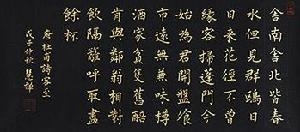 舍南舍北皆春
水但見群鷗日
日来花徑不曾
緣客掃蓬門今
始為君開盤飧
市遠無兼味樽
酒家貧隻舊醅
肯與鄰翁相對
飲隔籬呼取盡
餘杯
杜甫詩客至
戊子仲秋